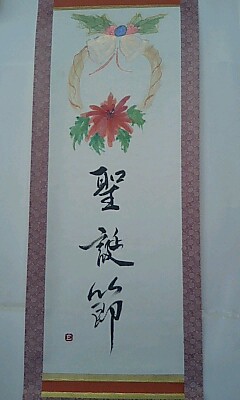 聖誕節